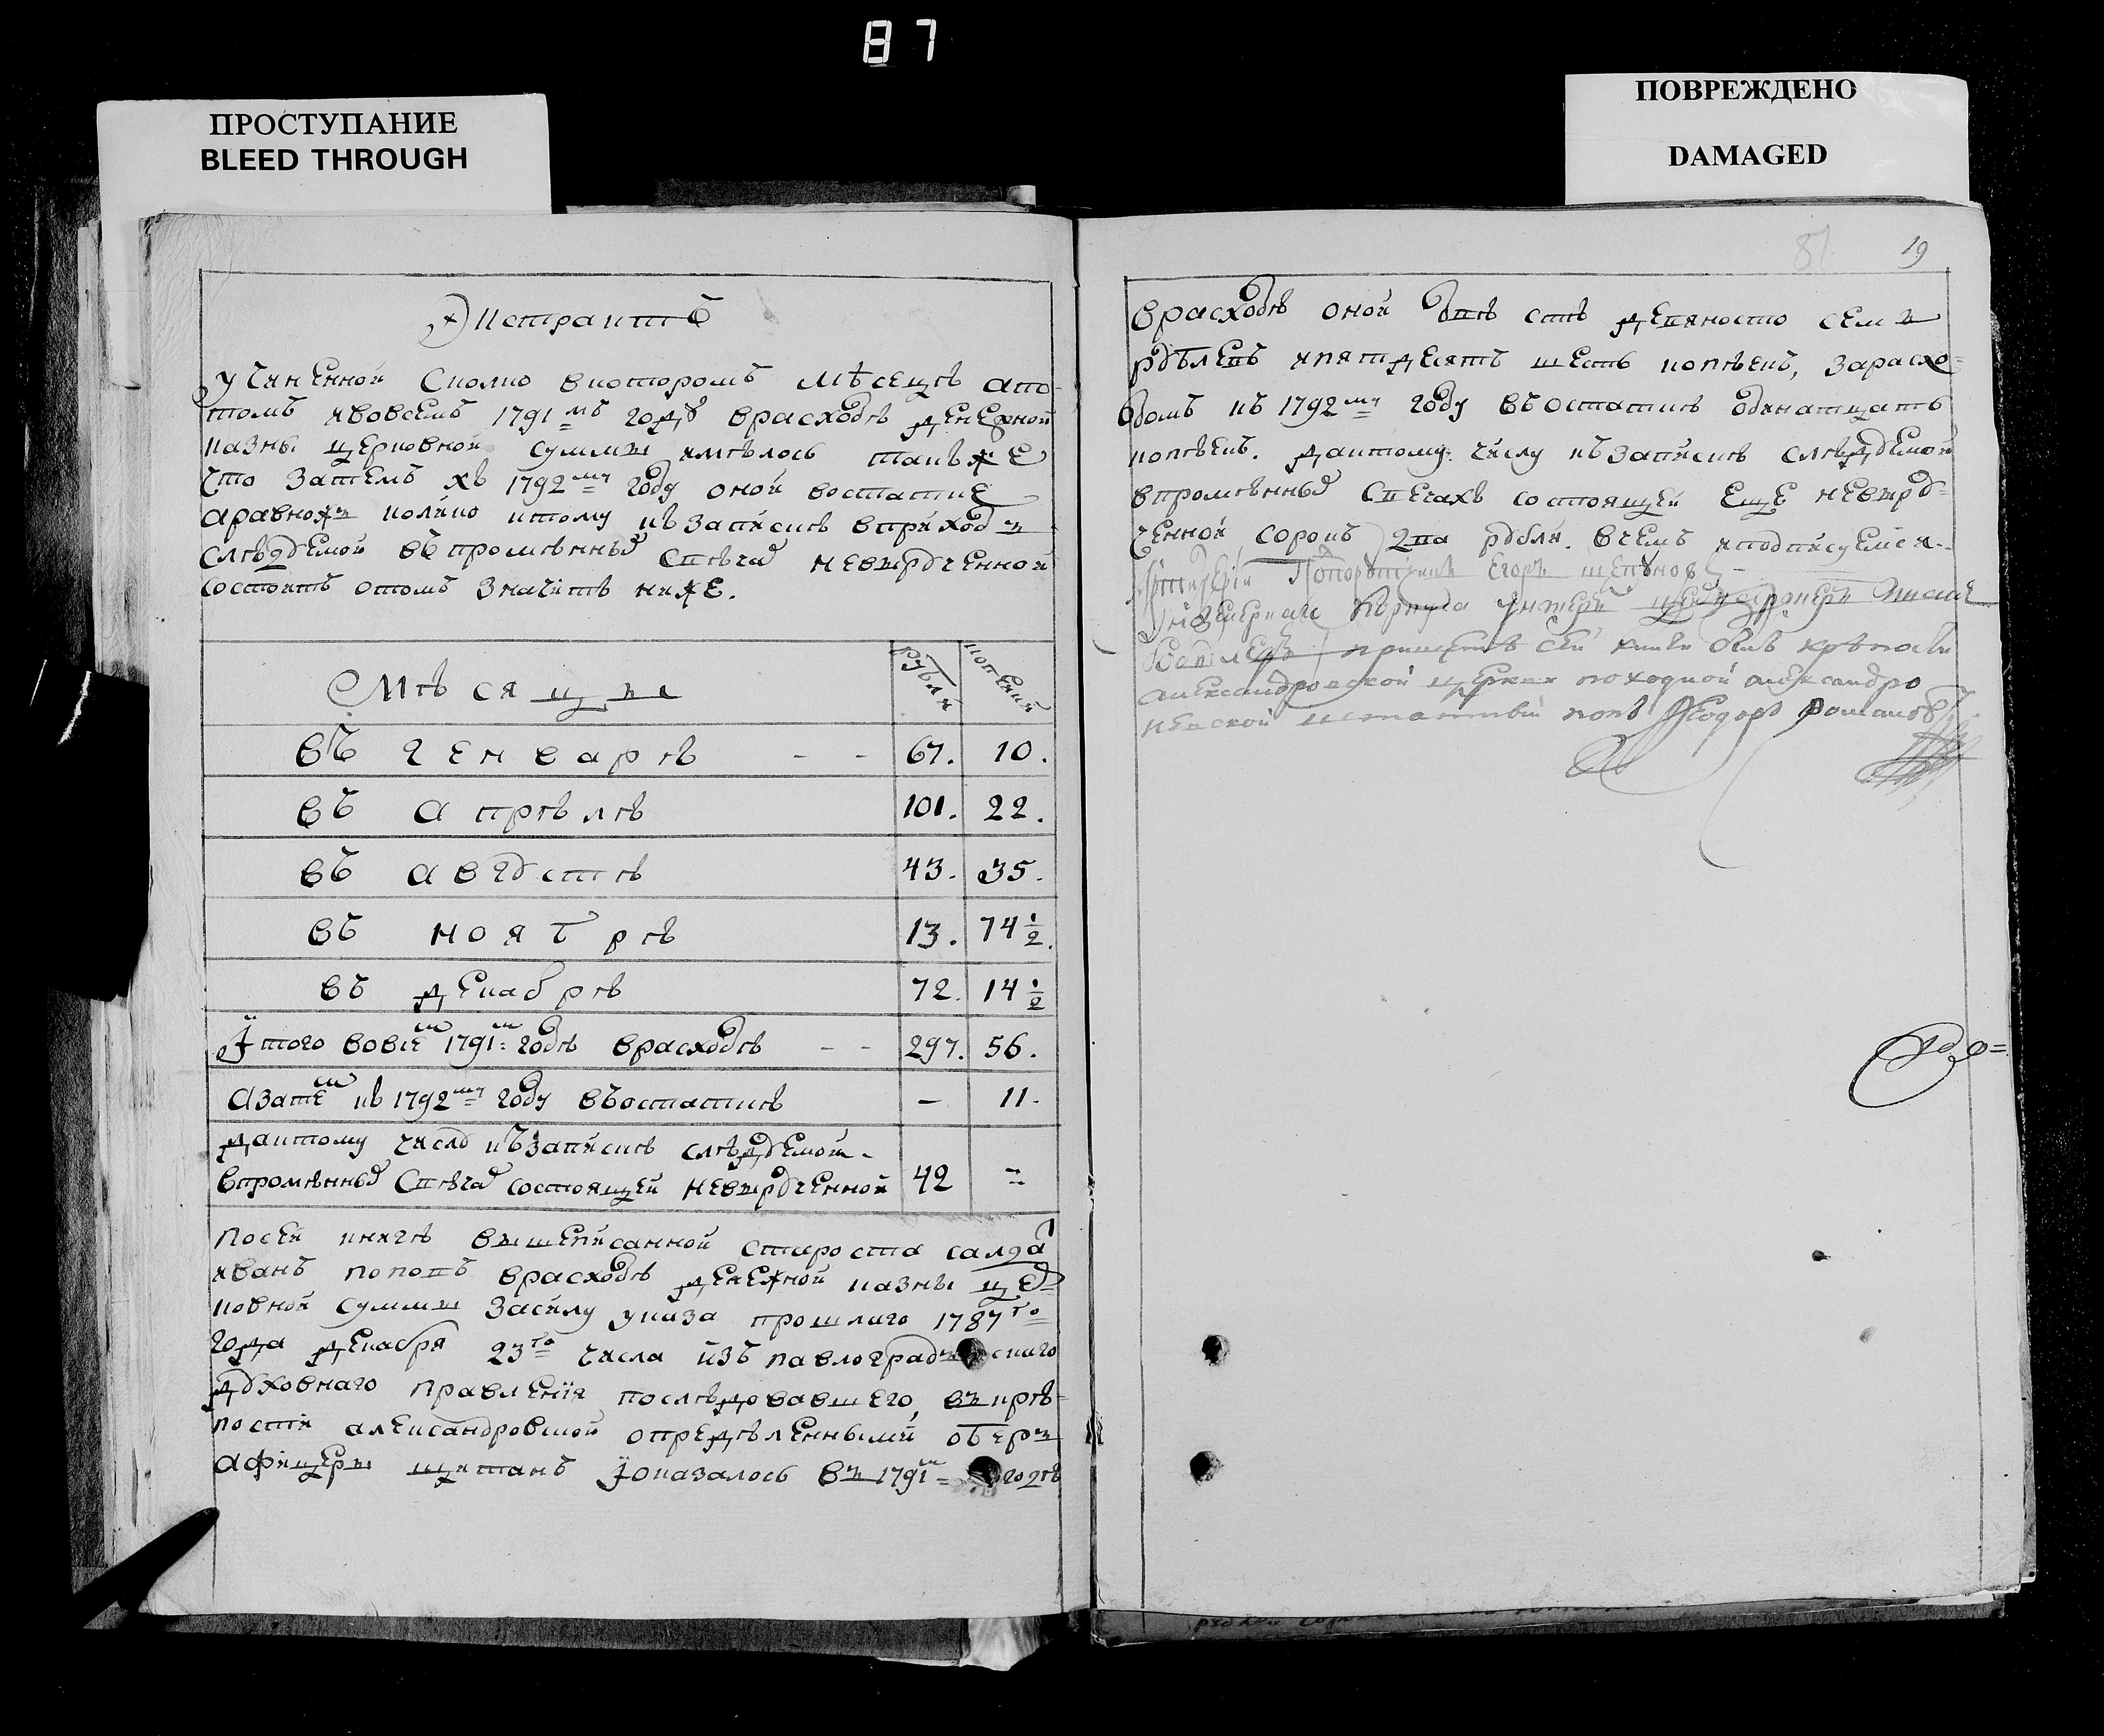 87
ПРОСТУПАНИЕ
BLEED THROUGH
ПОВРЕЖДЕНО
DAMAGED
Экстрактъ
Учиненной сколко вкоторомъ мѣсецѣ апо
томъ ивовсемъ 1791мъ году врасходѣ денежной
казны церковной суммы имѣлось такъ же
что затемъ къ 1792му году оной востатке
аравно и колико ктому къ записке вприход
следуемой въ промѣнных свечах невырученной
состоитъ отомъ значитъ ниже.
Мѣсяцы
рубли
копейки
въ генварѣ - - 67. 10.
въ апрѣлѣ 101. 22.
въ августѣ 43. 35.
въ ноябрѣ 13. 74 1/2.
въ декабрѣ 72. 14 1/2
Итого вовсем 1791м годѣ врасходѣ - - 297. 56.
Азатем къ 1792му году въостаткѣ — 11.
дактому числу къзапискѣ слѣдуемой
впромѣнных свѣчах состоящей невырученной 42 =
посей книгѣ вышеписанной староста салдат
иванъ поповъ врасходѣ денежной казны цер
ковной суммы засилу указа прошлаго 1787го
года декабря 23го числа изъ павлоград скаго
духовнаго правления последовавшего, въ крѣ-
пости александровской определенными оберъ
афицеры щитанъ иоказалось въ 1791м годѣ
81 19
врасходѣ оной двѣ стѣ девяносто семъ
рублевъ ипятдесятъ шесть копѣекъ, зарасхо=
домъ къ 1792му году въостаткѣ одинатцать
копѣекъ. дактому числу къзапискѣ слѣдуемой
впромѣнных свечахъ состоящей еще невыру=
ченной сорокъ два рубли. вчемъ иподписуемся.
Егоръ
Инженернаго корпуса
присчете сей книги былъ крѣпости
александровской церкви походной александро
невской попъ Феодоръ Романовъ